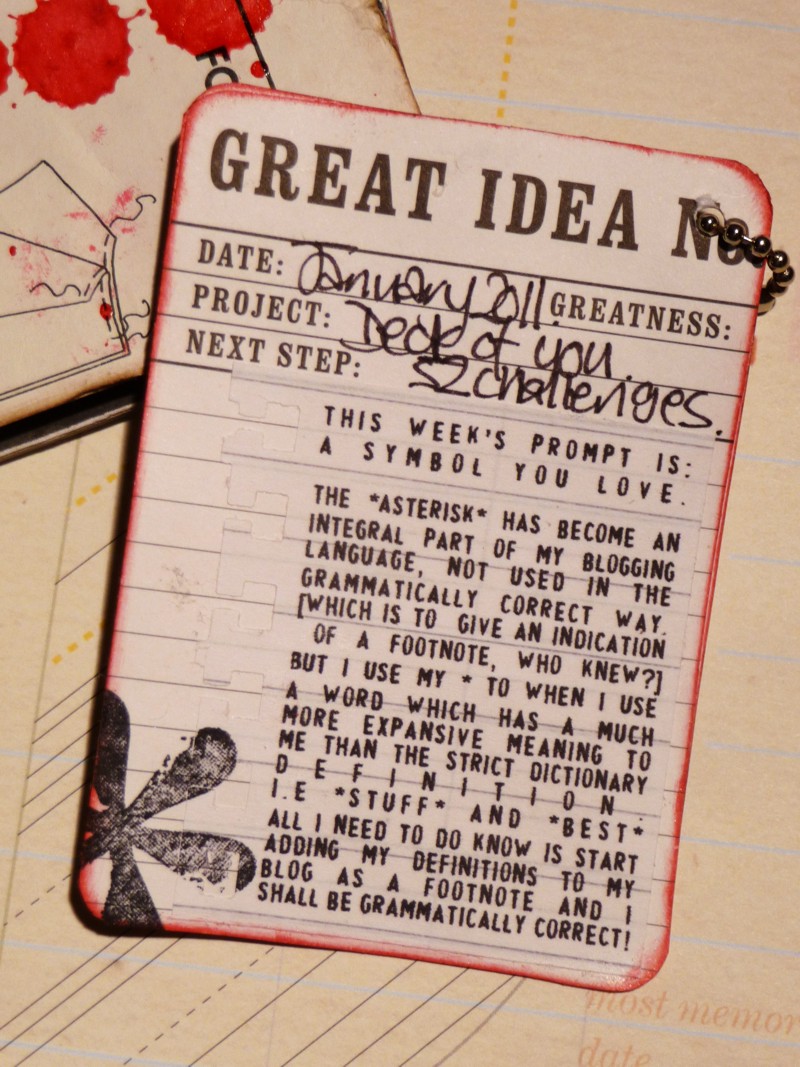 FO
GREAT IDEA No
DATE: January 2011 GREATNESS:
PROJECT: Deck of you.
NEXT STEP: 52 challenges.
THIS WEEK'S PROMPT IS:
A SYMBOL YOU LOVE.
THE *ASTERISK* HAS BECOME AN
INTEGRAL PART OF MY BLOGGING
LANGUAGE, NOT USED IN THE
GRAMMATICALLY CORRECT WAY.
[WHICH IS TO GIVE AN INDICATION
OF A FOOTNOTE, WHO KNEW?]
BUT I USE MY * TO WHEN I USE
A WORD WHICH HAS A MUCH
MORE EXPANSIVE MEANING TO
ME THAN THE STRICT DICTIONARY
DEFINITION.
I.E *STUFF* AND *BEST*
ALL I NEED TO DO KNOW IS START
ADDING MY DEFINITIONS TO MY
BLOG AS A FOOTNOTE AND I
SHALL BE GRAMMATICALLY CORRECT!
most memor
date